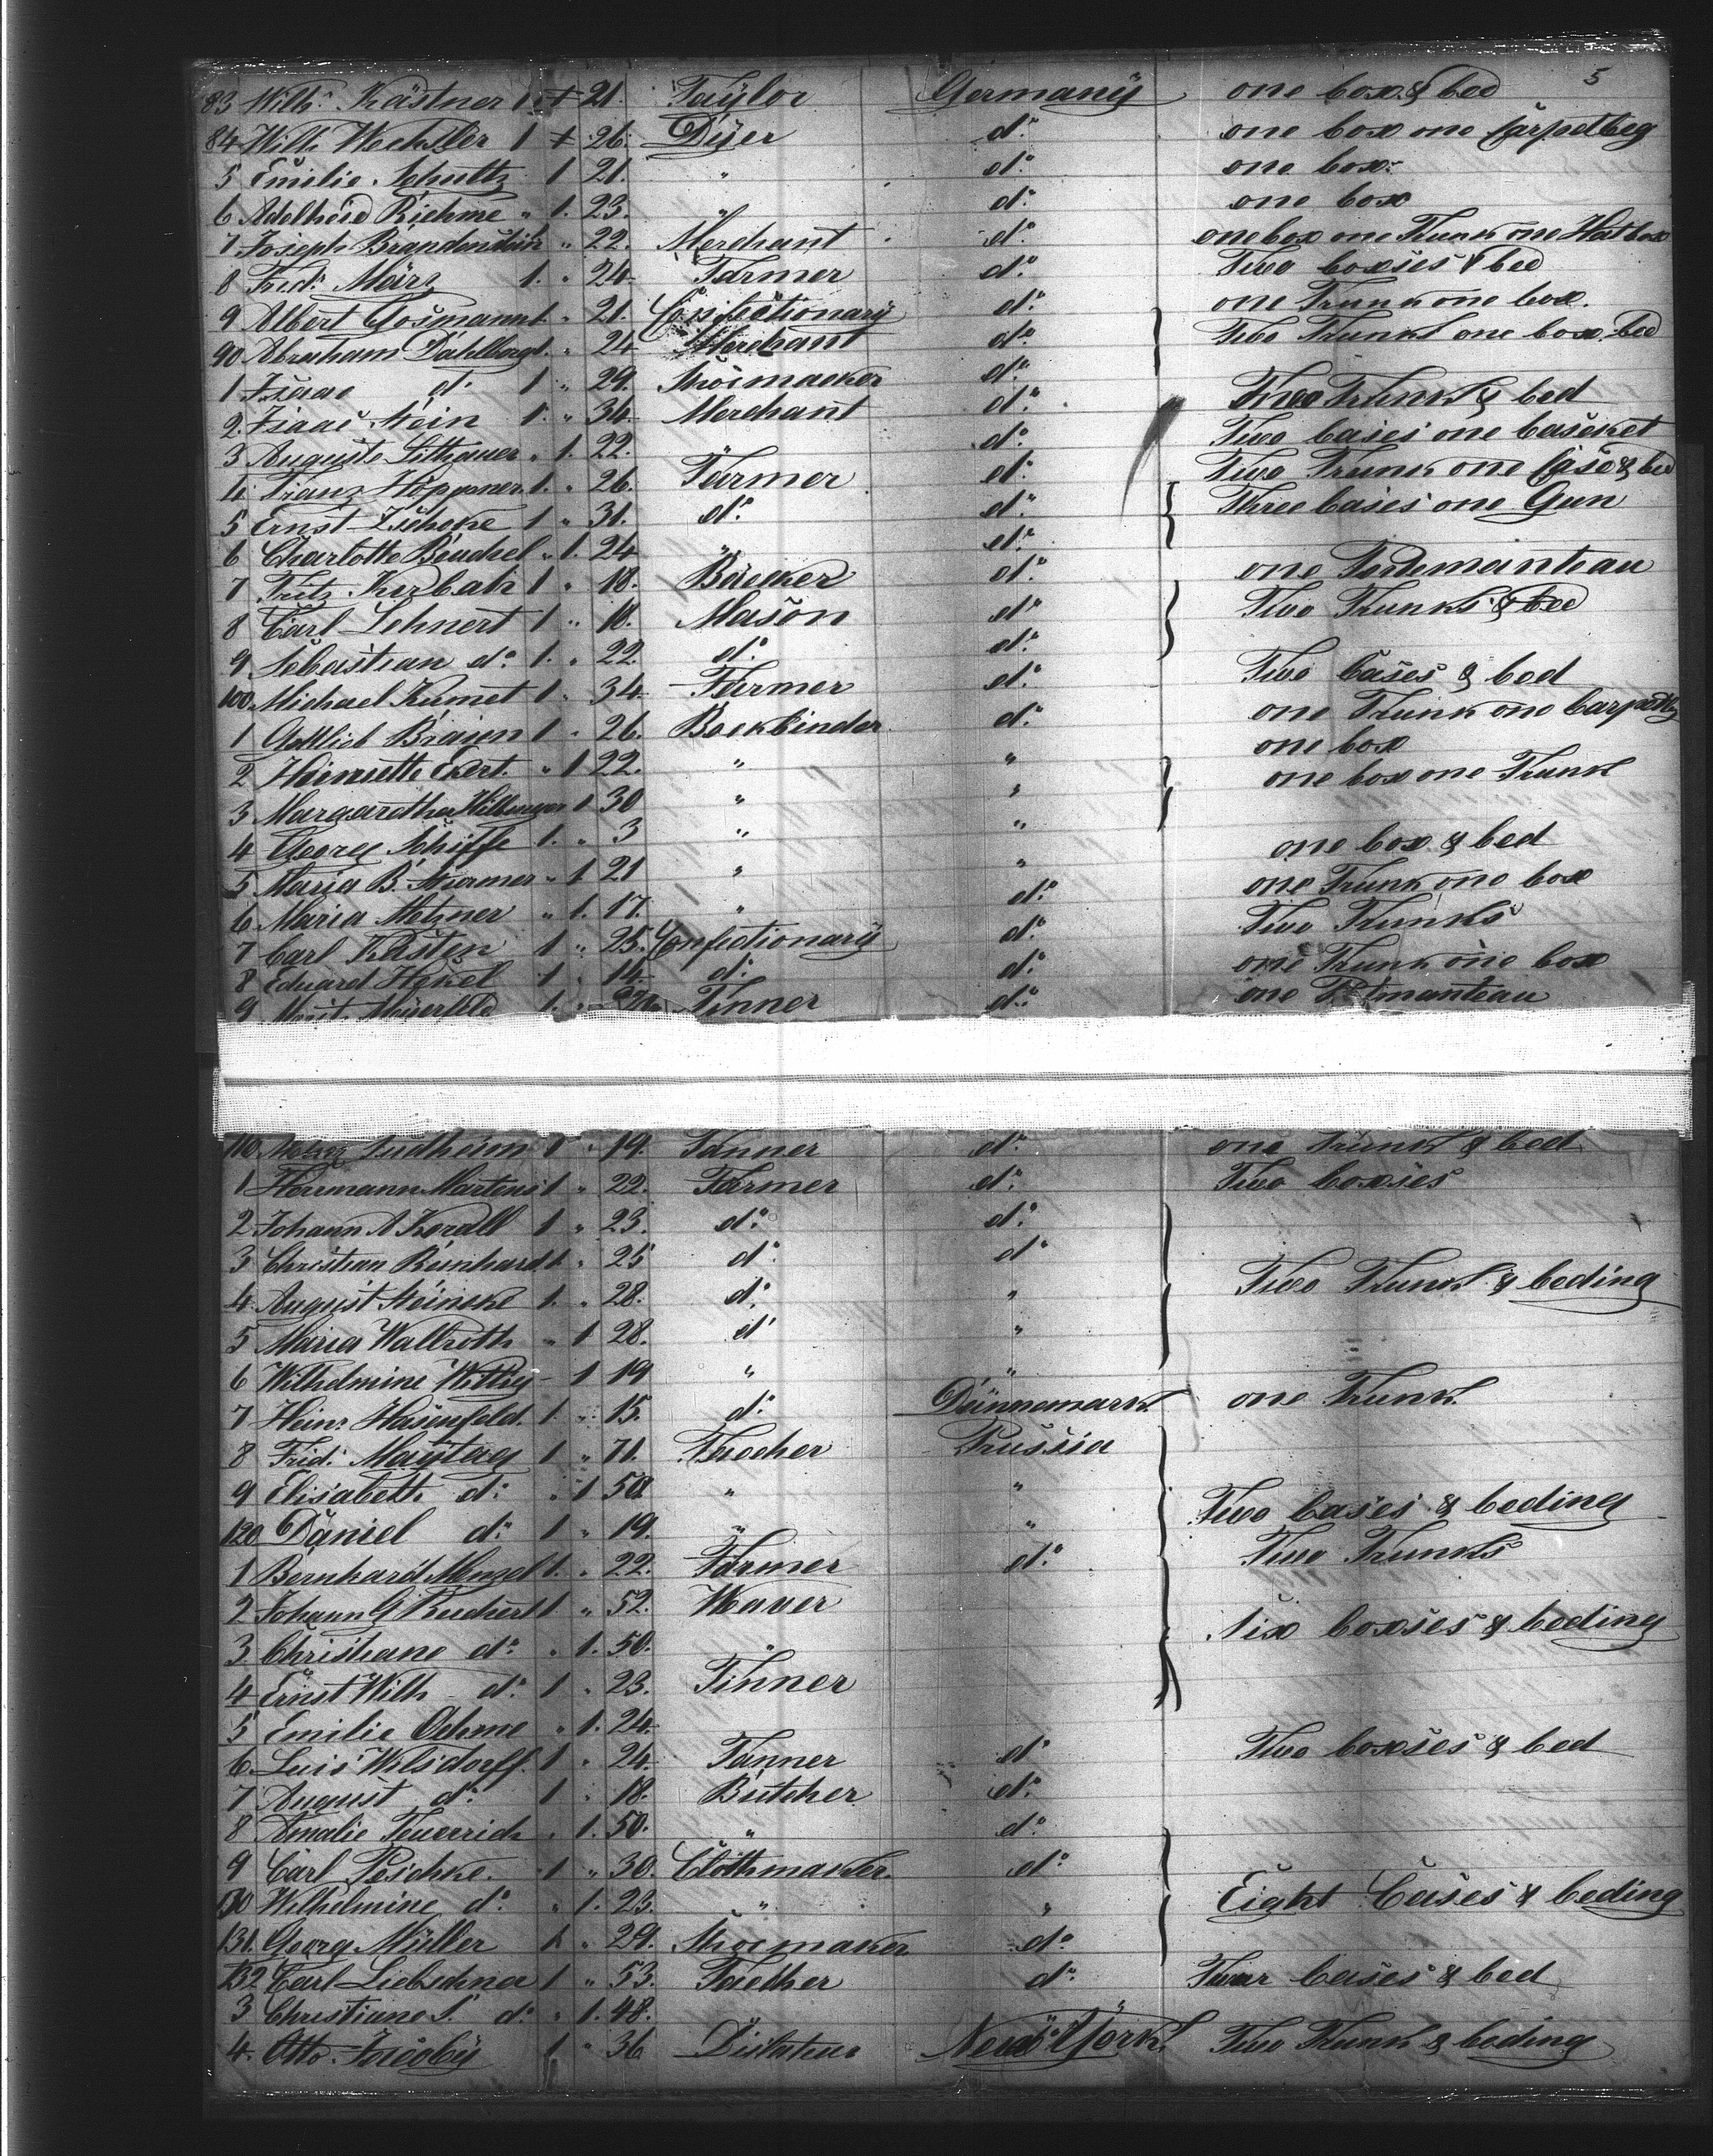 5
83 Wilh. Kästner 1 + 21. Taÿlor Germanÿ one box & bed
84 Wilh. Wechsler 1 + 26. Dÿer do. one box one Carpetbeg
5 Emilie Schultz 1 21. " do. one box
6 Adelheid Riehme " 1. 23. " do. one box
7 Joseph " 22. Merchant do. one box one Trunk one Hatbox
8 Frid: März 1. " 24 Farmer do. Two boxses & bed
9 Albert Gossmann 1. " 21. Confectionarÿ do. one Trunk one box.
90 Abraham Dahlberg 1. " 24 Merchant do. Two Trunks one box bed
1 Isaac do. 1 " 29. Shoemacker do.
2. Isaac Stein 1. " 34. Merchant do. Trunk & bed
3 Auguste Lithauer " 1. 22. do. Two Cases one basket
4 Franz Höppner 1. " 26. Farmer do. Two Trunk one Case & bed
5 Ernst Zschoke 1 " 31. do. do. Three Cases one Gun
6 Charlotte Beuchel " 1. 24 " do.
7 Fritz Kerbah 1 " 18. Bäcker do. one Portemanteau
8 Carl Lehnert 1 " 18. Mason do. Two Trunks & bed
9 Sebastian do. 1. " 22. do. do.
100 Michael Kumet 1 " 34 Farmer do. Two Cases & bed
1 Gottlieb 1 " 26. Bookbinder do. one Trunk one
2 Henriette Ekert. " 1 22. " " one box
3 Margaretha 1 30 " " one box one Trunk
4 Georg Schiffe 1. " 3 " "
5 Maria B. Sturmer " 1 21 " " one box & bed
6 Maria Metzner " 1. 17. " do. one Trunk one box
7 Carl Kästen 1 " 25. Confectionarÿ do. Two Trunks
8 Eduard Hekel 1 " 14. do. do. one Trunk one box
9 Morit Meÿerfeld 1. " Tinner do. one Portmanteau
110 Sudheim 1 " 19. Tanner do. one Trunk & bed
1 Herrmann Martens 1 " 22. Farmer do. Two boxses
2 Johann A Korall 1 " 23. do. do.
3 Christian Reinhardt 1. " 25 do. do.
4. August Steineke 1. " 28. do. " Two Trunk & beding
5 Maria Wallroth " 1 28. do. "
6 Wilhelmine Wittig " 1 19 " "
7 Heinr. Hasenfeld. 1. " 15. do. Dännemark one Trunk.
8 Frid: Maÿtag 1 " 71. Prussia
9 Elisabeth do. " 1 50 " "
120 Daniel do. 1 " 19. " " Two Cases & beding
1 Bernhard Menzel 1. " 22. Farmer do. Two Trunks
2 Johann G 1 " 52. Weaver
3 Christiane do. " 1. 50. Six boxses & beding
4 Ernst Wilh do. 1 " 23. Tinner
5 Emilie Oehme " 1. 24.
6. Luis Wilsdorff. 1 " 24. Tanner do. Two boxses & bed
7 August do. 1 " 18. Butcher do.
8 Amalie " 1. 50. " do.
9 Carl Peschke. 1 " 30. Clothmaker. do.
130 Wilhelmine do. " 1. 23. " " Eight Cases & beding
131. Georg Müller 1 " 29. Shoemaker do.
132 Carl Liebschner 1 " 53. do. Cases & bed
3 Christiane S. do. " 1. 48. "
4. Otto Jacobÿ 1 " 36 New Ÿork. Two Trunk & beding